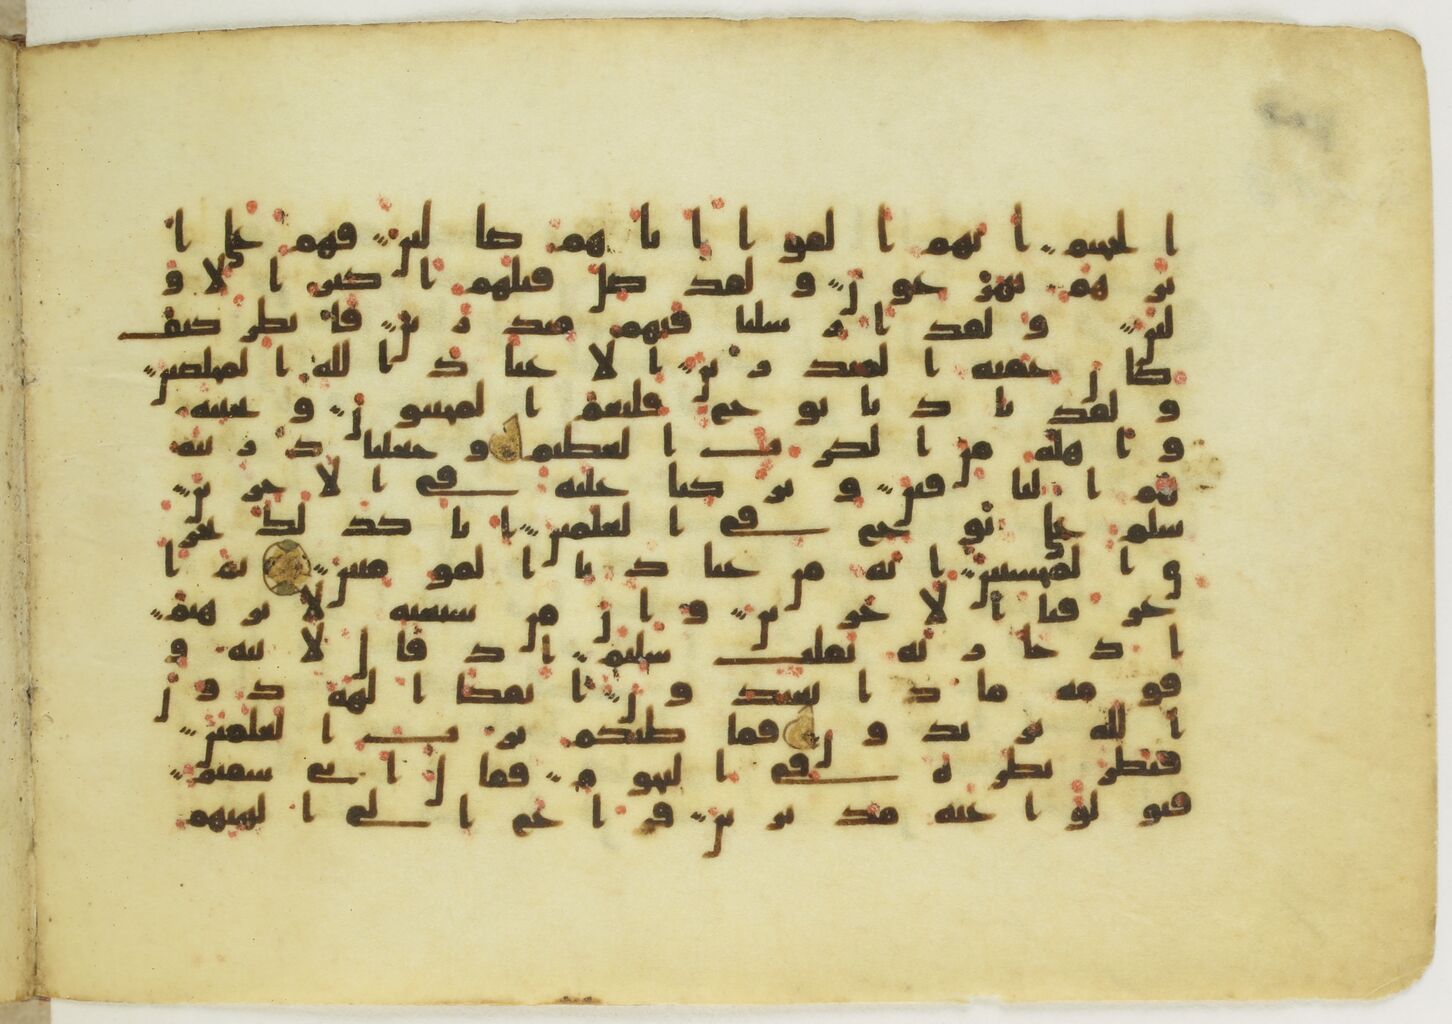 الجحيم انهم الفوا اباهم ضالين فهم على ا
ثرهم يهرعون ولقد ضل قبلهم اكثر الاو
لين ولقد ارسلنا فيهم منذرين فانظر كيف
كان عقبة المنذرين الا عباد الله المخلصين
ولقد نادينا نوح فلنعم المجيبون ونجينه
واهله من الكرب العظيم وجعلنا ذريته
هم الباقين وتركنا عليه في الاخرين
سلم على نوح في العلمين انا كذلك نجز
ي المحسنين انه من عبادنا المومنين ثم ا
غرقنا الاخرين وان من شيعته لابرهيم
اذ جا ربه بقلب سليم اذ قال لابيه و
قومه ماذا تعبدون ائفكا الهة دون
الله تريدون فما ظنكم برب العلمين
فنظر نظرة في النجوم فقال اني سقيم
فتولوا عنه مدبرين فراغ الى الهتهم